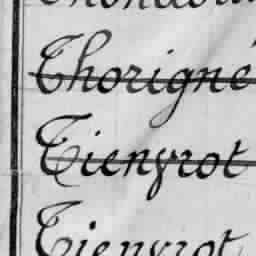 Thorigné
Tienyrot
Tienyrot